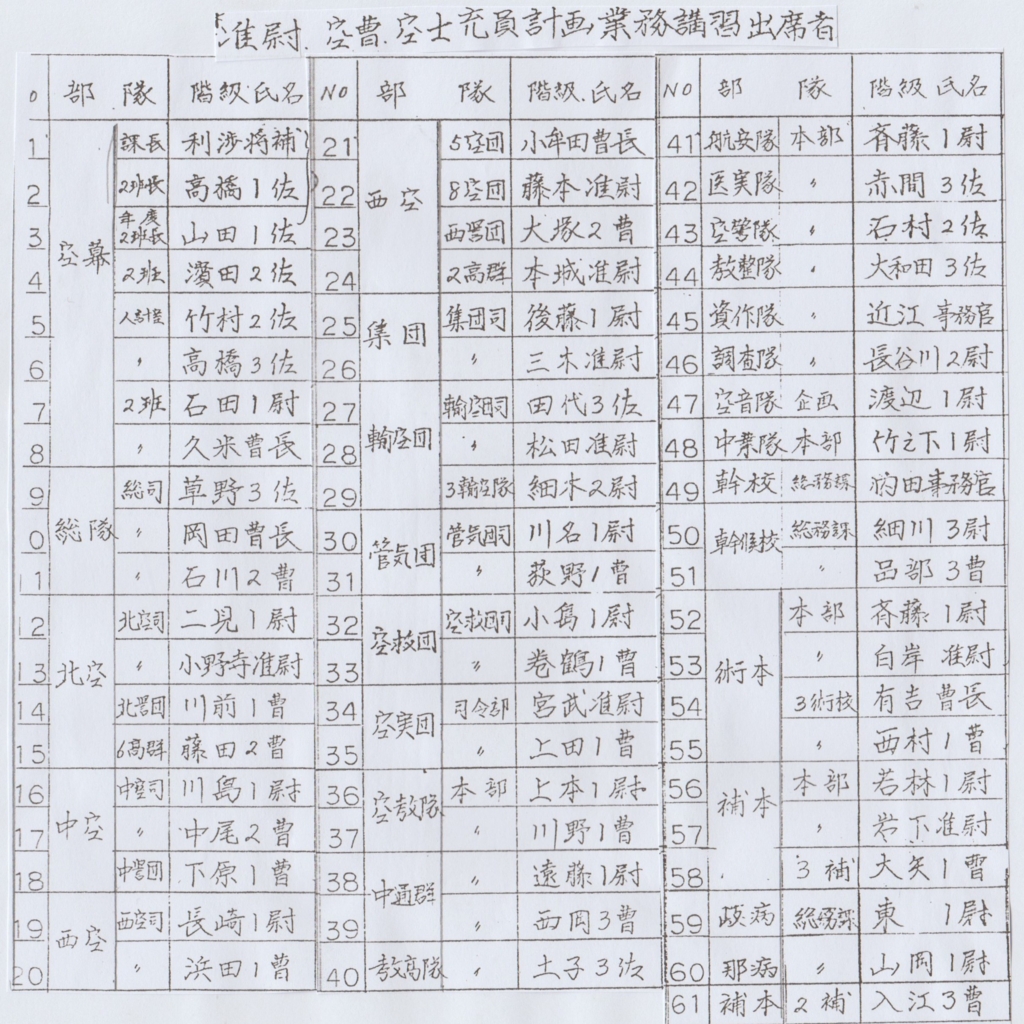 准尉.空曹.空士充員計画業務講習出席者
部 隊 階級氏名
空幕
1 課長 利渉将補
2 2班長 高橋1佐
3 年度2班長 山田1佐
4 2班 濱田2佐
5 竹村2佐
6 〃 高橋3佐
7 2班 石田1尉
8 〃 久米曹長
総隊
9 総司 草野3佐
0 〃 岡田曹長
1 〃 石川2曹
北空
12 北空司 二見1尉
13 〃 小野寺准尉
14 北警団 川前1曹
15 6高群 藤田2曹
中空
16 中空司 川島1尉
17 〃 中尾2曹
18 中警団 下原1曹
西空
19 西空司 長崎1尉
20 〃 浜田1曹
NO 部 隊 階級.氏名
西空
21 5空団 小牟田曹長
22 8空団 藤本准尉
23 西警団 大塚2曹
24 2高群 本城准尉
集団
25 集団司 後藤1尉
26 〃 三木准尉
輸空団
27 輸空団司 田代3佐
28 〃 松田准尉
29 3輸空隊 細木2尉
管気団
30 管気団司 川名1尉
31 〃 荻野1曹
空救団
32 空救団司 小島1尉
33 〃 巻鶴1曹
空実団
34 司令部 宮武准尉
35 〃 上田1曹
空教隊
36 本部 上本1尉
37 〃 川野1曹
中通群
38 〃 遠藤1尉
39 〃 西岡3曹
40 教高隊 〃 土子3佐
NO 部 隊 階級氏名
41 航安隊 本部 斉藤1尉
42 医実隊 〃 赤間3佐
43 空警隊 〃 石村2佐
44 教整隊 〃 大和田3佐
45 資作隊 〃 近江事務官
46 調査隊 〃 長谷川2尉
47 空音隊 企画 渡辺1尉
48 中業隊 本部 竹之下1尉
49 幹校 総務課 内田事務官
幹候校
50 総務課 細川3尉
51 〃 呂部3曹
術本
52 本部 斉藤1尉
53 〃 白岸准尉
54 3術校 有吉曹長
55 〃 西村1曹
補本
56 本部 若林1尉
57 〃 岩下准尉
58 3補 大矢1曹
59 岐病 総務課 東 1尉
60 那病 〃 山岡1尉
61 補本 2補 入江3曹